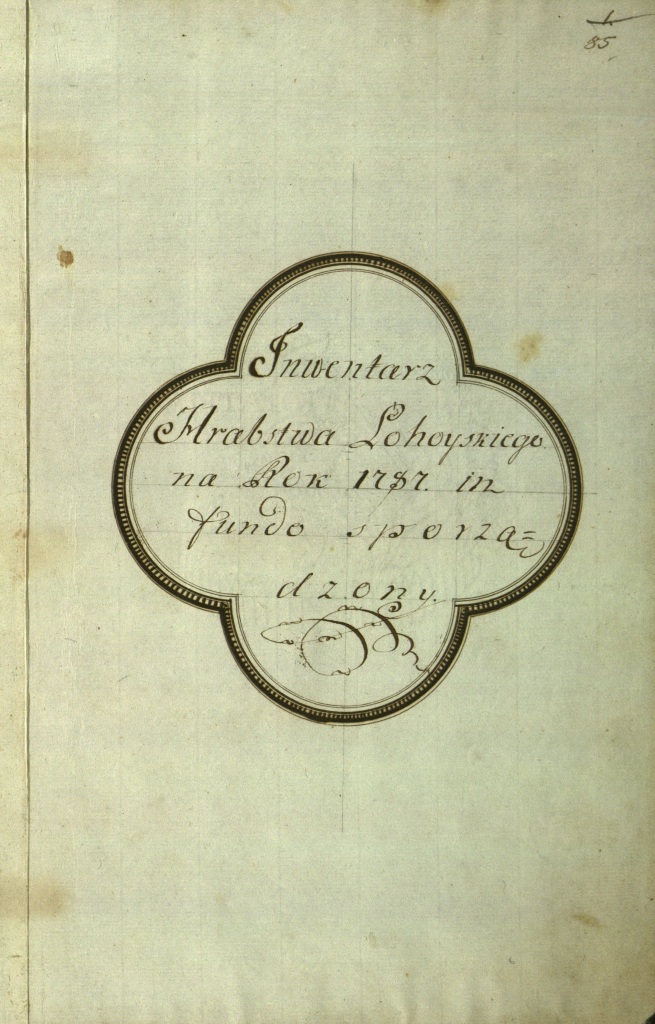 1
85
Inwentarz
Hrabstwa Lohoyskiego
na Rok 1787. in
fundo sporzą=
dzony.